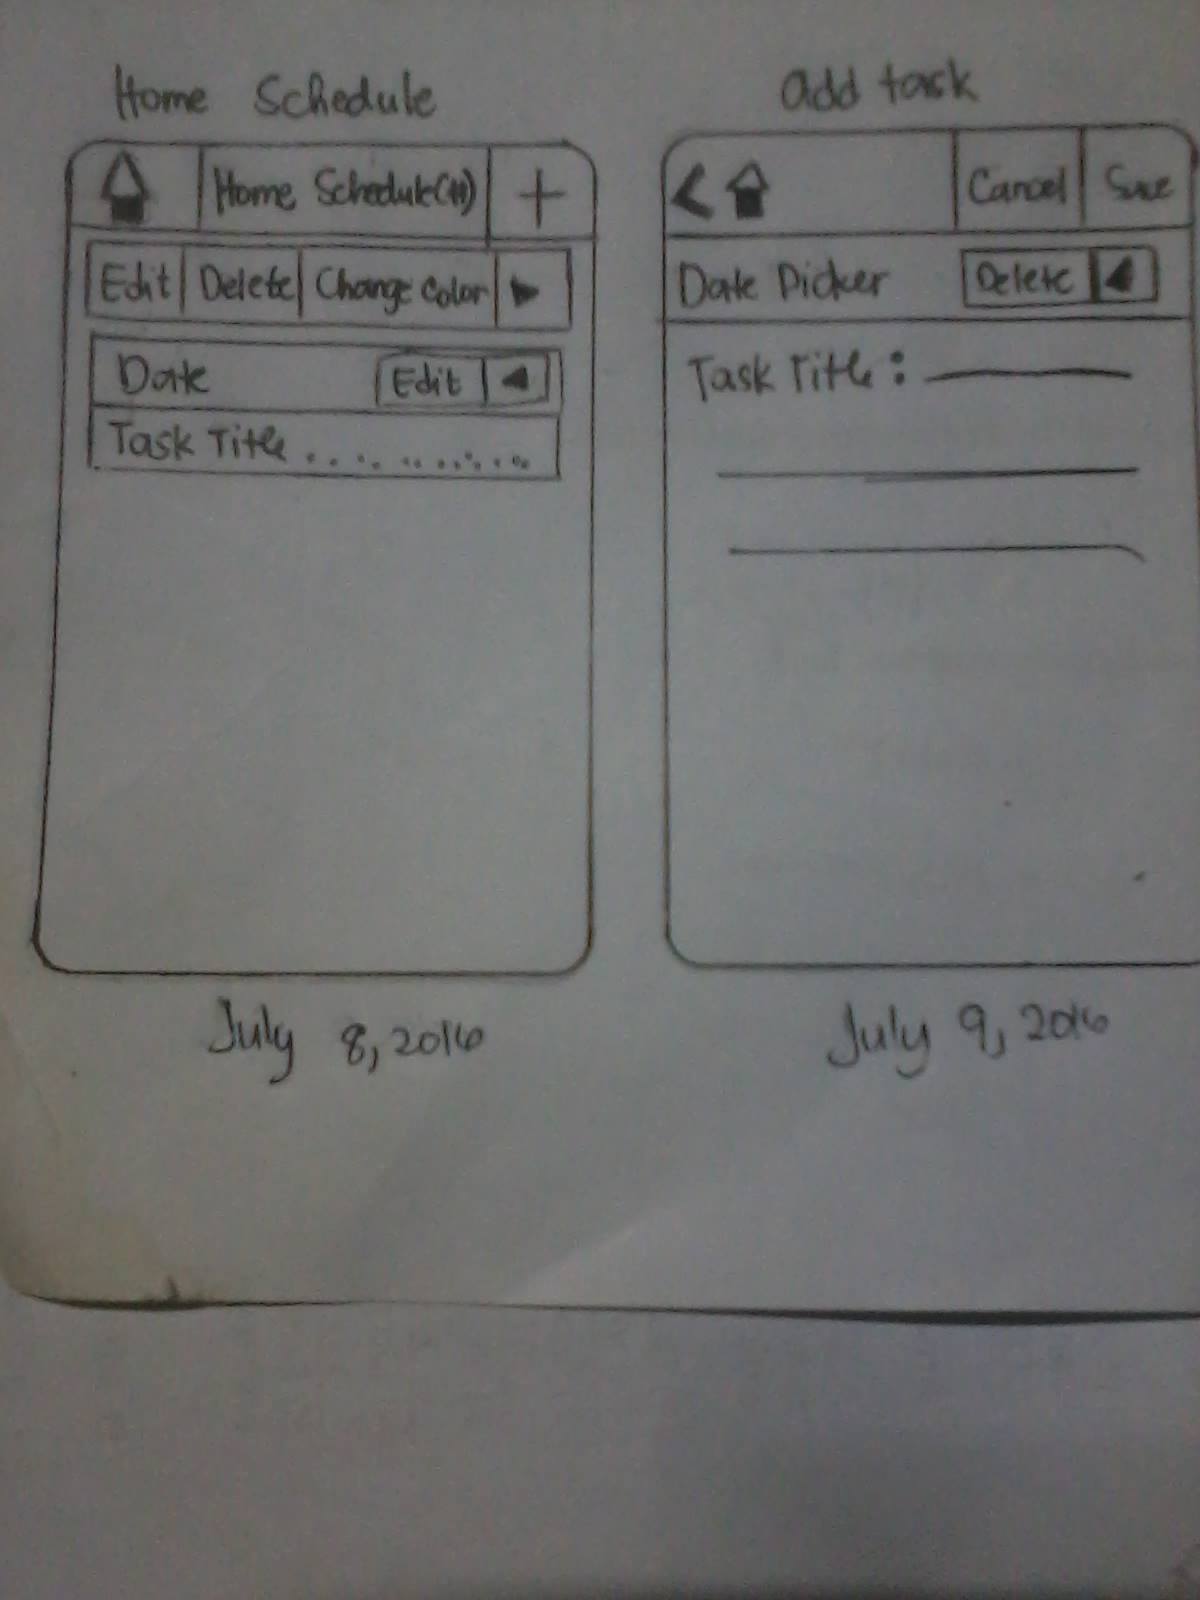 Home Schedule
Home Schedule
+
Edit Delete Change Color
Date Edit
Task Title . . . . . . . . . . . .
July 8, 2016
add task
< Cancel Save
Date Picker Delete
Task Title :
July 9, 2016